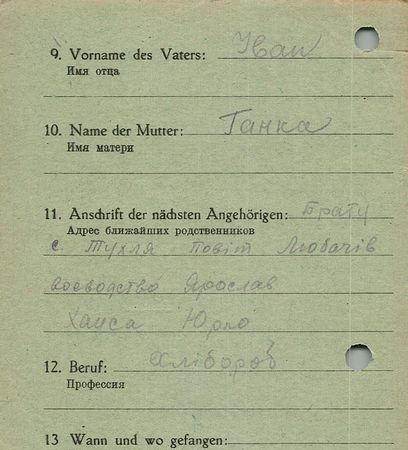 9. Vorname des Vaters: Іван
Имя отца
10. Name der Mutter: Ганка
Имя матери
11. Anschrift der nächsten Angehörigen: Брату
Адрес ближайших родственников
с. Тухля повіт Любачів
воєводство Ярослав
Юрко
12. Beruf: Хлібороб
Профессия
13 Wann und wo gefangen: